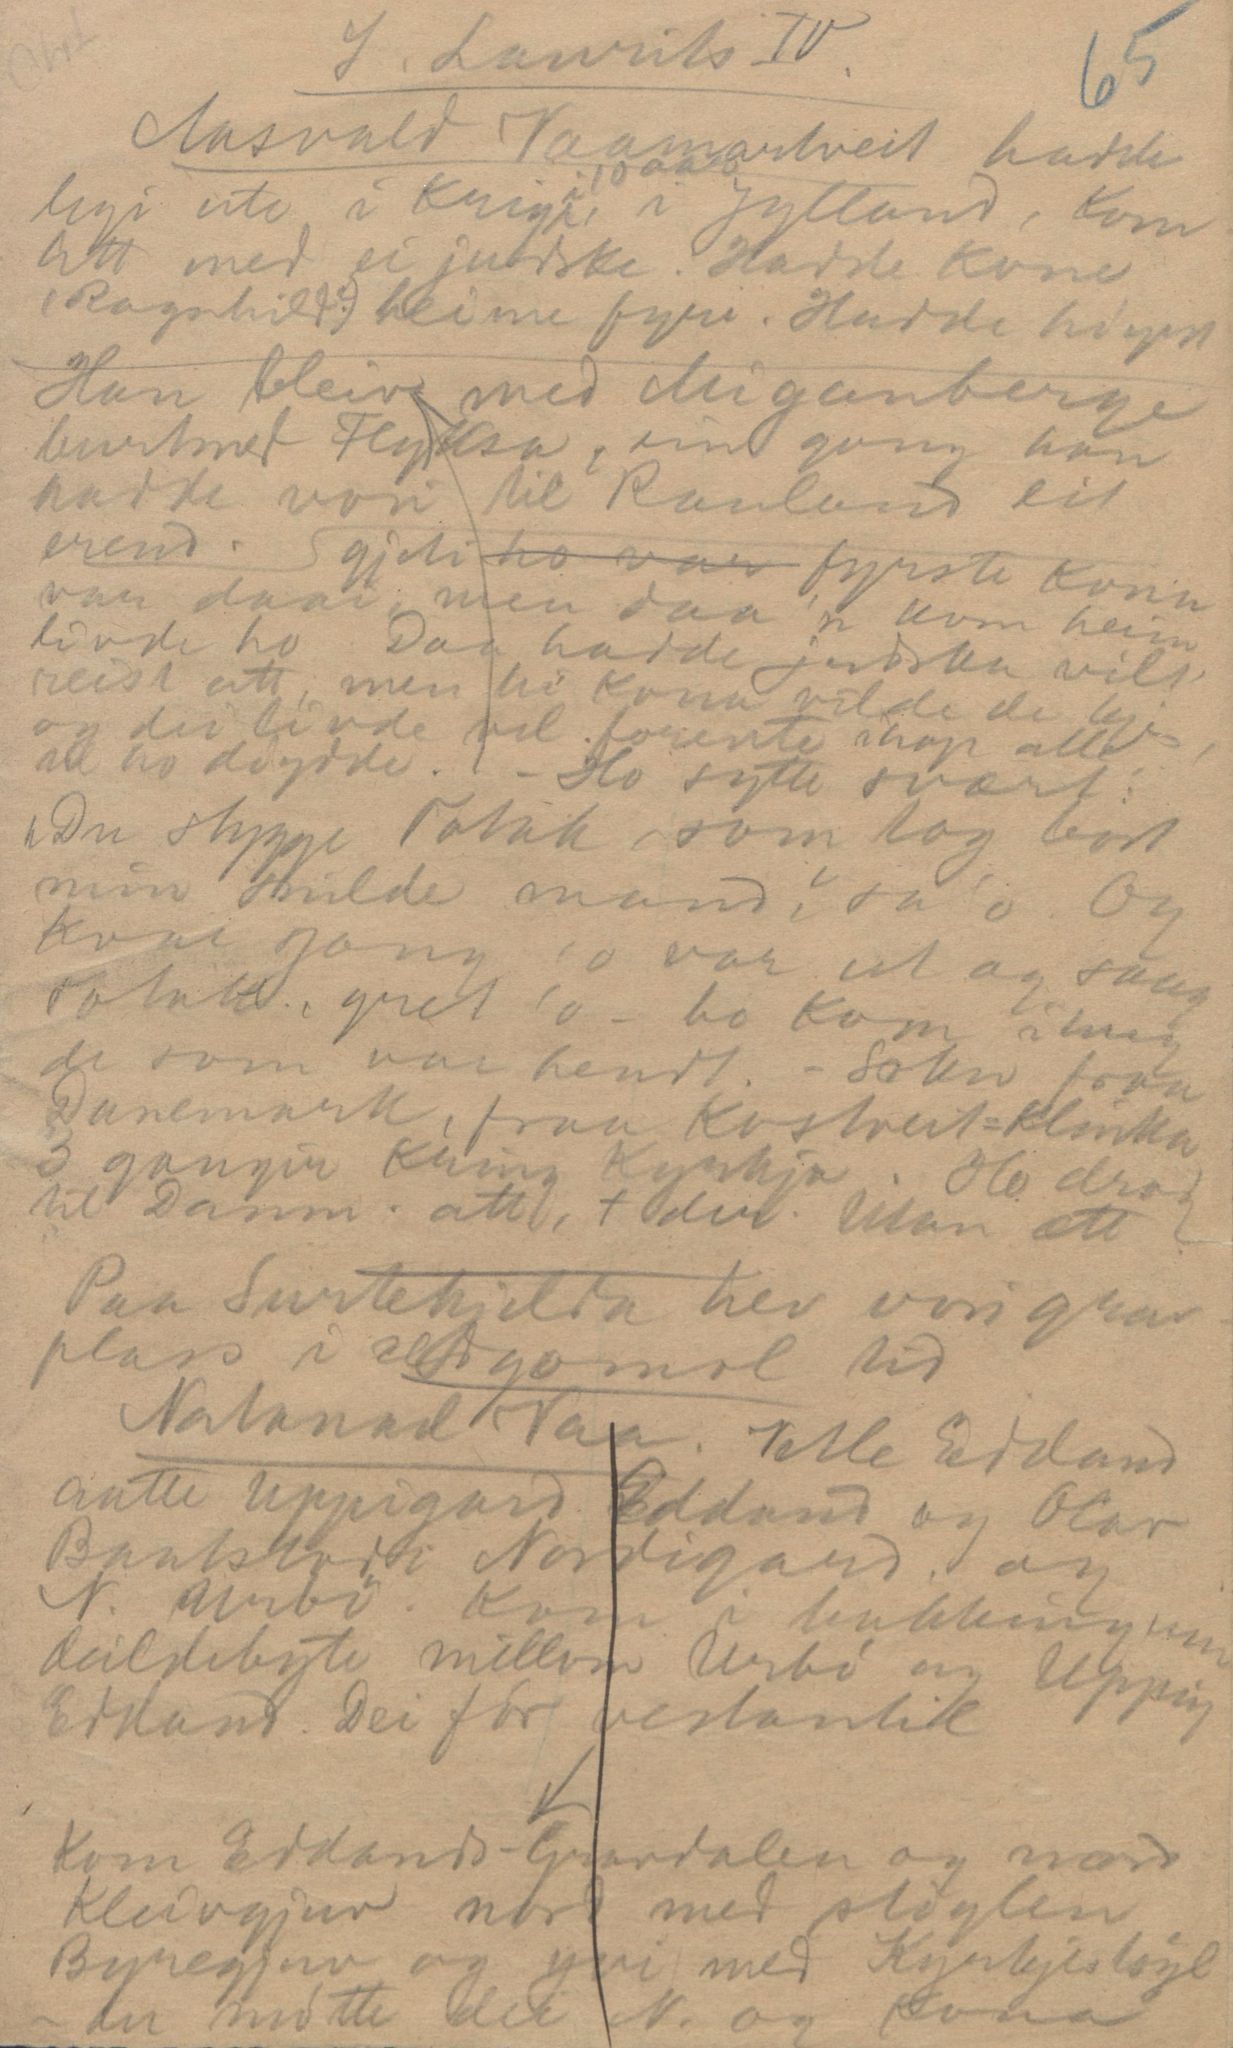 J. Laurits IV.
65
Aasvald Vaamartveit hadde
legi ute i krigje i 10 aar i Jylland, kom
att med ei judske. Hadde kone
(Ragnhild?) heime fyri. Hadde
Han bleiv med Miganberge
burtmed Flyksa, ein gong han
hadde vori til Rauland eit
erend. gjeti ho var fyrste kona
var daai, men daa 'n kom heim
livde ho. Daa hadde judska vilt
reist att, men hi kona vilde de
og dei livde vel forente ihop alle
til ho döydde. - Ho sytte svært:
"Du stygge Totak som tog bort
min milde mand", sa 'o. Og
kvar gong 'o var ut og saag
Totak, gret 'o - ho kom ihug
de som var hendt. - Soknv fraa
Danemark, fraa Kostveit-Klinka
3 gongir kring kyrkja. Ho drog
til Danm. att, + der. Utan ætt
Paa Surtekjelda hev vori grav-
plass i eldgomol tid
Natanael Vaa. Vetle Edland
aatte Uppigard Edland og Olav
Baatstod i Nordigard, og
N. Urbö. Kom i trætting um
deildebyte millom Urbö og Uppig
Edland. Dei fór vestantil
Kom Edlands-Grardalen og nord
Kleivgjuv nord med stöylen
Byregjuv og yvi med Kyrkjestöyl
- der mötte dei N. og kona